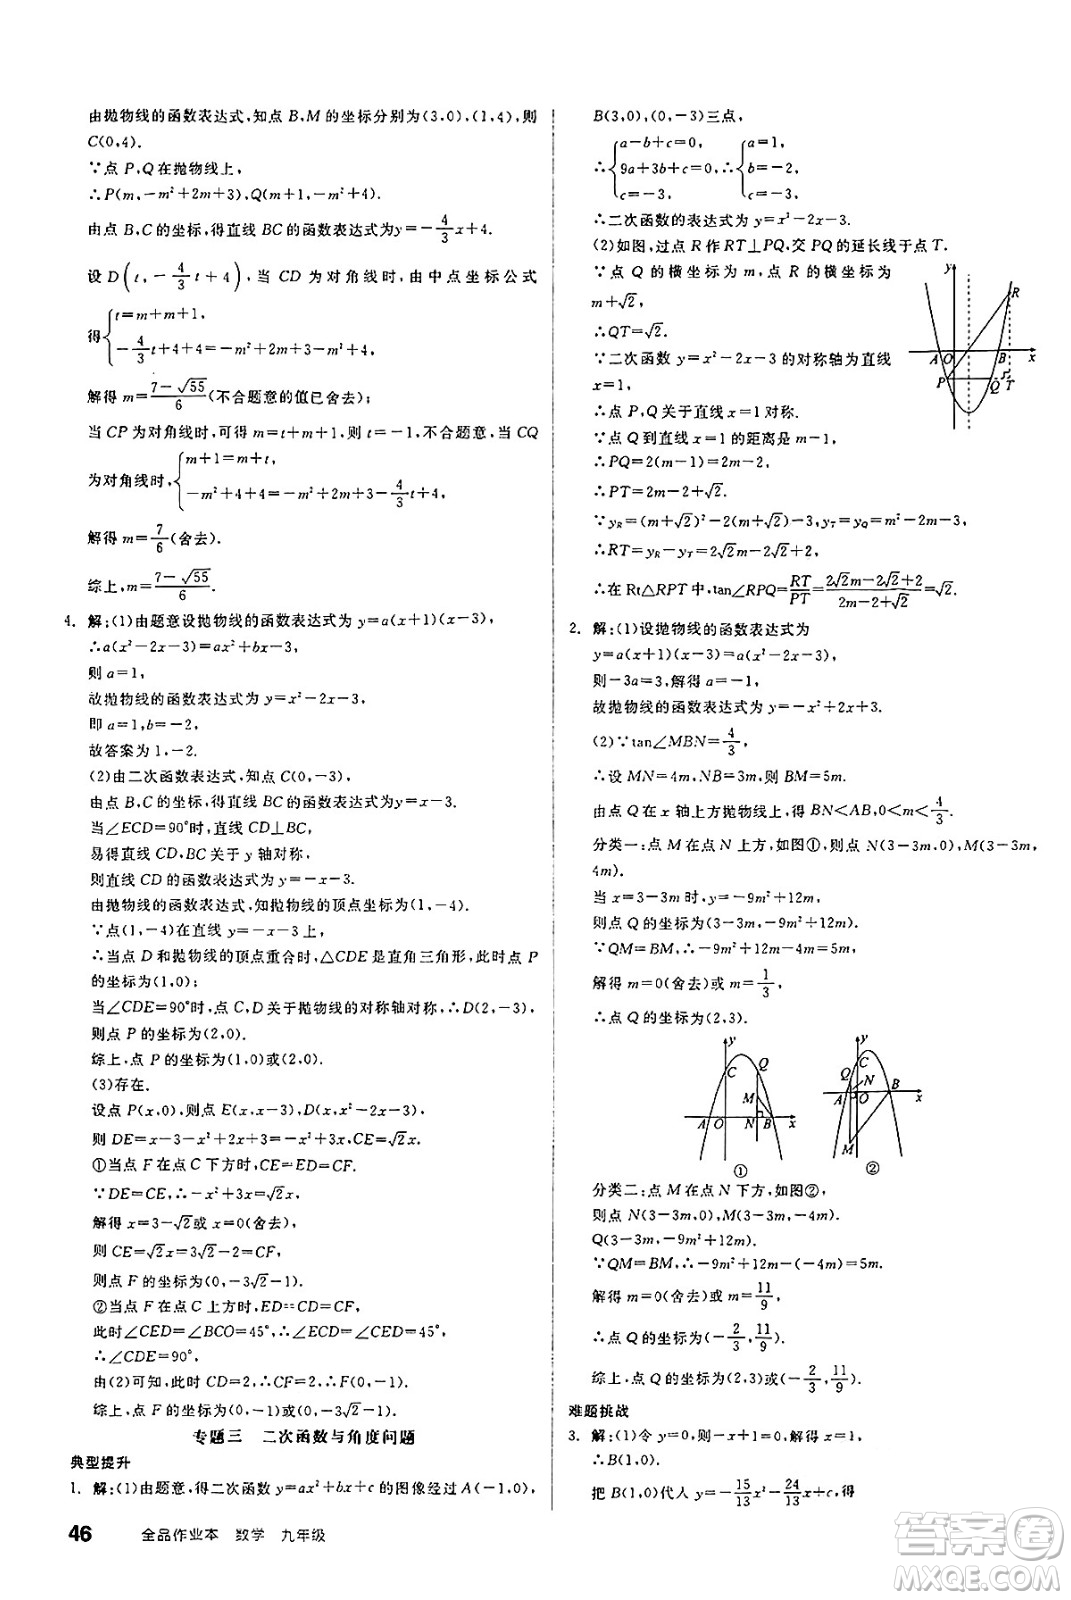 由抛物线的函数表达式,知点 B,M 的坐标分别为(3,0),(1,4),则
C(0,4).
∵点 P,Q在抛物线上,
∴P(m,-m²+2m+3),Q(m+1,-m²+4).
由点 B,C 的坐标,得直线 BC的函数表达式为y=-4/3x+4.
设 D(t,-4/3t+4),当 CD 为对角线时,由中点坐标公式
得{t=m+m+1,
-4/3t+4+4=-m²+2m+3-m²+4,
解得 m=(7-√55)/6(不合题意的值已舍去);
当 CP为对角线时,可得 m=t+m+1,则 t=-1,不合题意,当 CQ
为对角线时,{m+1=m+t,
-m²+4+4=-m²+2m+3-4/3t+4,
解得 m=7/6(舍去).
综上,m=(7-√55)/6.
4. 解:(1)由题意设抛物线的函数表达式为 y=a(x+1)(x-3),
∴a(x²-2x-3)=ax²+bx-3,
则 a=1,
故抛物线的函数表达式为 y=x²-2x-3,
即 a=1,b=-2,
故答案为 1,-2.
(2)由二次函数表达式,知点 C(0,-3),
由点 B,C 的坐标,得直线 BC 的函数表达式为y=x-3.
当∠ECD=90°时,直线 CD⊥BC,
易得直线 CD,BC 关于 y 轴对称,
则直线 CD 的函数表达式为 y=-x-3.
由抛物线的函数表达式,知抛物线的顶点坐标为(1,-4).
∵点(1,-4)在直线 y=-x-3 上,
∴当点 D 和抛物线的顶点重合时,△CDE 是直角三角形,此时点 P
的坐标为(1,0);
当∠CDE=90°时,点 C,D 关于抛物线的对称轴对称,∴D(2,-3),
则点 P 的坐标为(2,0).
综上,点 P 的坐标为(1,0)或(2,0).
(3)存在.
设点 P(x,0),则点 E(x,x-3),D(x,x²-2x-3),
则 DE=x-3-x²+2x+3=-x²+3x,CE=√2x.
①当点 F 在点 C 下方时,CE=DE=CF.
∵DE=CE,∴-x²+3x=√2x,
解得 x=3-√2或 x=0(舍去),
则 CE=√2x=3√2-2=CF,
则点 F 的坐标为(0,-3√2-1).
②当点 F 在点 C 上方时,ED=CD=CF,
此时∠CED=∠BCO=45°,∴∠ECD=∠CED=45°,
∴∠CDE=90°,
由(2)可知,此时 CD=2,∴CF=CD=2,
则点 F 的坐标为(0,-1).
综上,点 F 的坐标为(0,-3√2-1)或(0,-1).
专题三 二次函数与角度问题
典型提升
1. 解:(1)由题意,得二次函数 y=ax²+bx+c 的图像经过 A(-1,0),
46 全品作业本 数学 九年级
B(3,0),(0,-3)三点,
∴{a-b+c=0,
9a+3b+c=0,
c=-3,
∴{a=1,
b=-2,
c=-3,
∴二次函数的表达式为 y=x²-2x-3.
(2)如图,过点 R 作 RT⊥PQ,交 PQ的延长线于点 T.
∵点 Q 的横坐标为 m,点 R 的横坐标为
m+√2,
∴QT=√2.
∵二次函数 y=x²-2x-3 的对称轴为直线
x=1,
∴点 P,Q 关于直线 x=1 对称.
∵点 Q 到直线 x=1 的距离是 m-1,
∴PQ=2(m-1)=2m-2,
∴PT=2m-2+√2.
∵yR=(m+√2)²-2(m+√2)-3,yT=yQ=m²-2m-3,
∴RT=yR-yT=2√2m-2√2+2,
∴在 Rt△RPT 中,tan∠RPQ=RT/PT=(2√2m-2√2+2)/(2m-2+√2)=√2.
y
R
A
O
B
x
P
Q
T
2. 解:(1)设抛物线的函数表达式为
y=a(x+1)(x-3)=a(x²-2x-3),
则-3a=3,解得 a=-1,
故抛物线的函数表达式为 y=-x²+2x+3.
(2)∵tan∠MBN=4/3,
∴设 MN=4m,NB=3m,则 BM=5m.
由点 Q 在 x 轴上方抛物线上,得 BN<AB,0<m<4/3.
分类一:点 M 在点 N 上方,如图①,则点 N(3-3m,0),M(3-3m,
4m).
当 x=3-3m 时,y=-9m²+12m,
则点 Q 的坐标为(3-3m,-9m²+12m).
∵QM=BM,∴-9m²+12m-4m=5m,
解得 m=0(舍去)或 m=1/3,
∴点 Q 的坐标为(2,3).
y
C
Q
M
A
O
N
B
x
①
y
C
Q
N
B
A
O
x
M
②
分类二:点 M 在点 N 下方,如图②,
则点 N(3-3m,0),M(3-3m,-4m),
Q(3-3m,-9m²+12m).
∵QM=BM,∴-9m²+12m-(-4m)=5m,
解得 m=0(舍去)或 m=11/9,
∴点 Q 的坐标为(-2/3,11/9).
综上,点 Q 的坐标为(2,3)或(-2/3,11/9).
难题挑战
3. 解:(1)令 y=0,则-x+1=0,解得 x=1,
∴B(1,0).
把 B(1,0)代入 y=-15/13x²-24/13x+c,得
答案圈
MXQE.COM